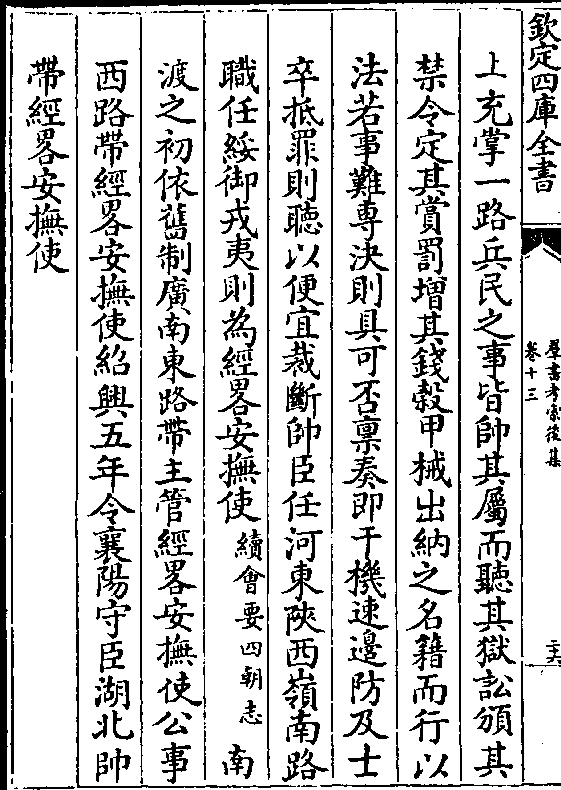 欽定四庫全書
羣書考索後集
卷十三
二六
上充掌一路兵民之事皆帥其屬而聽其獄訟頒其
禁令定其賞罰增其錢穀甲械出納之名籍而行以
法若事難專決則具可否禀奏即干機速邊防及士
卒抵罪則聽以便宜裁斷帥臣任河東陜西嶺南路
職任綏御戎夷則為經畧安撫使續會要四朝志南
渡之初依舊制廣南東路帶主管經畧安撫使公事
西路帶經畧安撫使紹興五年令襄陽守臣湖北帥
帶經畧安撫使